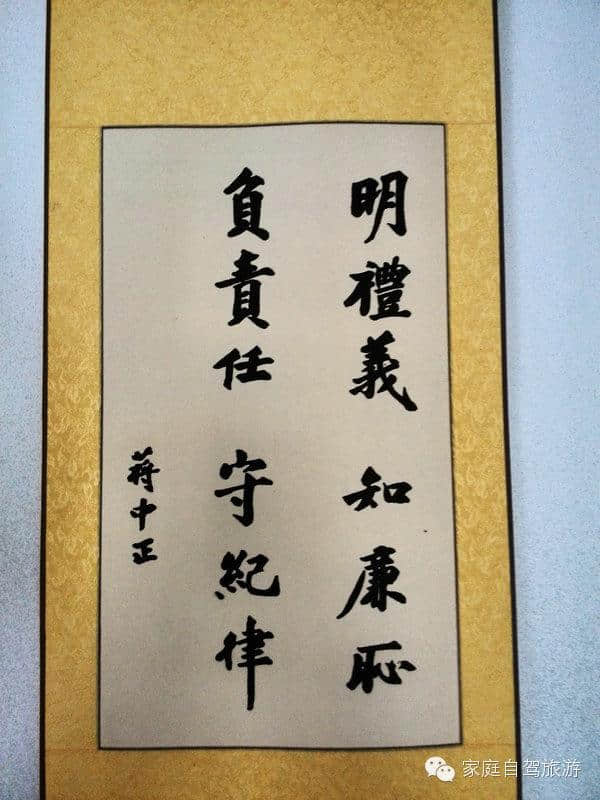 明禮義 知廉恥
負責任 守紀律
蔣中正
家庭自驾旅游